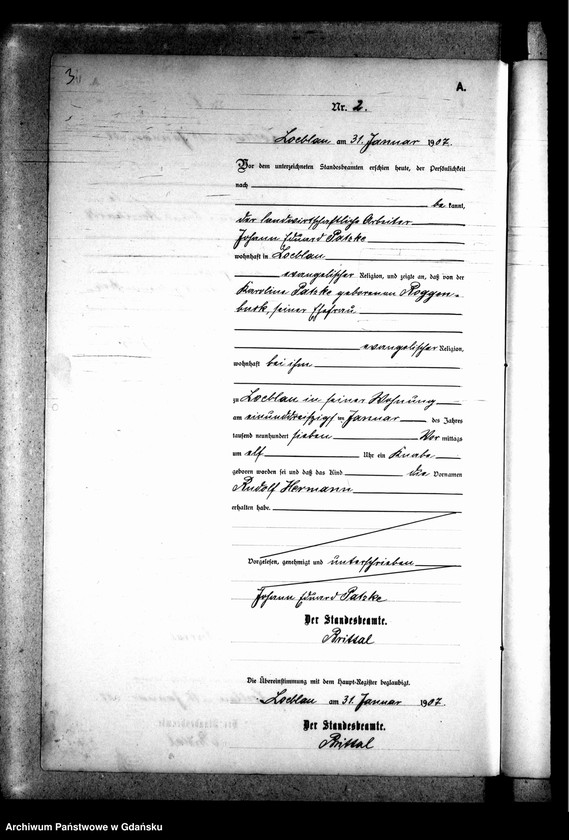 3
A.
Nr. 2.
Loeblau am 31. Januar 1907.
Vor dem unterzeichneten Standesbeamten erschien heute, der Persönlichkeit
nach
be kannt,
der landwirtschaftliche Arbeiter
Johann Eduard Patzke
wohnhaft in Loeblau
evangelischer Religion, und zeigte an, daß von der
Karoline Patzke geborenen Roggen-
buck, seiner Ehefrau
evangelischer Religion,
wohnhaft bei ihm
zu Loeblau in seiner Wohnung
am einunddreißigsten Januar des Jahres
tausend neunhundert sieben Vor mittags
um elf Uhr ein Knabe
geboren worden sei und daß das Kind die Vornamen
Rudolf Hermann
erhalten habe.
Vorgelesen, genehmigt und unterschrieben
Johann Eduard Patzke
Der Standesbeamte.
Brittal
Die Übereinstimmung mit dem Haupt-Register beglaubigt.
Loeblau am 31. Januar 1907.
Der Standesbeamte.
Brittal
Archiwum Państwowe w Gdańsku